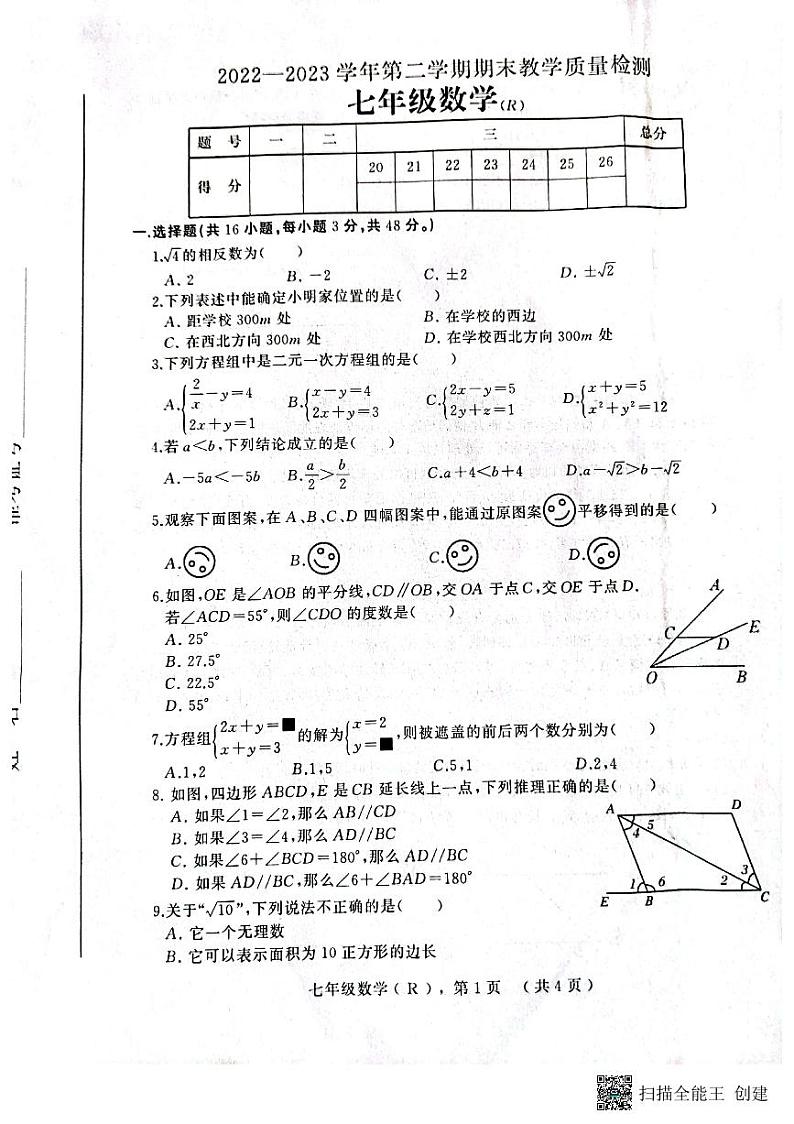 2022—2023学年第二学期期末教学质量检测
七年级数学(R)
题 号 一 二 三 总分
20 21 22 23 24 25 26
得 分
一.选择题(共16小题,每小题3分,共48分。)
1.√4的相反数为( )
A. 2 B. -2 C. ±2 D. ±√2
2.下列表述中能确定小明家位置的是( )
A. 距学校300m处 B. 在学校的西边
C. 在西北方向300m处 D. 在学校西北方向300m处
3.下列方程组中是二元一次方程组的是( )
A.{2/x-y=4 2x+y=1 B.{x-y=4 2x+y=3 C.{2x-y=5 2y+z=1 D.{x+y=5 x²+y²=12
4.若a<b,下列结论成立的是( )
A.-5a<-5b B.a/2>b/2 C.a+4<b+4 D.a-√2>b-√2
5.观察下面图案,在A、B、C、D四幅图案中,能通过原图案平移得到的是( )
A. B. C. D.
6.如图,OE是∠AOB的平分线,CD∥OB,交OA于点C,交OE于点D.
若∠ACD=55°,则∠CDO的度数是( )
A. 25°
B. 27.5°
C. 22.5°
D. 55°
A
C
D
E
O
B
7.方程组{2x+y=■ x+y=3的解为{x=2 y=■,则被遮盖的前后两个数分别为( )
A.1,2 B.1,5 C.5,1 D.2,4
8. 如图,四边形ABCD,E是CB延长线上一点,下列推理正确的是( )
A. 如果∠1=∠2,那么AB//CD
B. 如果∠3=∠4,那么AD//BC
C. 如果∠6+∠BCD=180°,那么AD//BC
D. 如果AD//BC,那么∠6+∠BAD=180°
A D
4 5
3
1 6 2
E B C
9.关于“√10”,下列说法不正确的是( )
A. 它一个无理数
B. 它可以表示面积为10正方形的边长
七年级数学(R),第1页 (共4页)
扫描全能王 创建